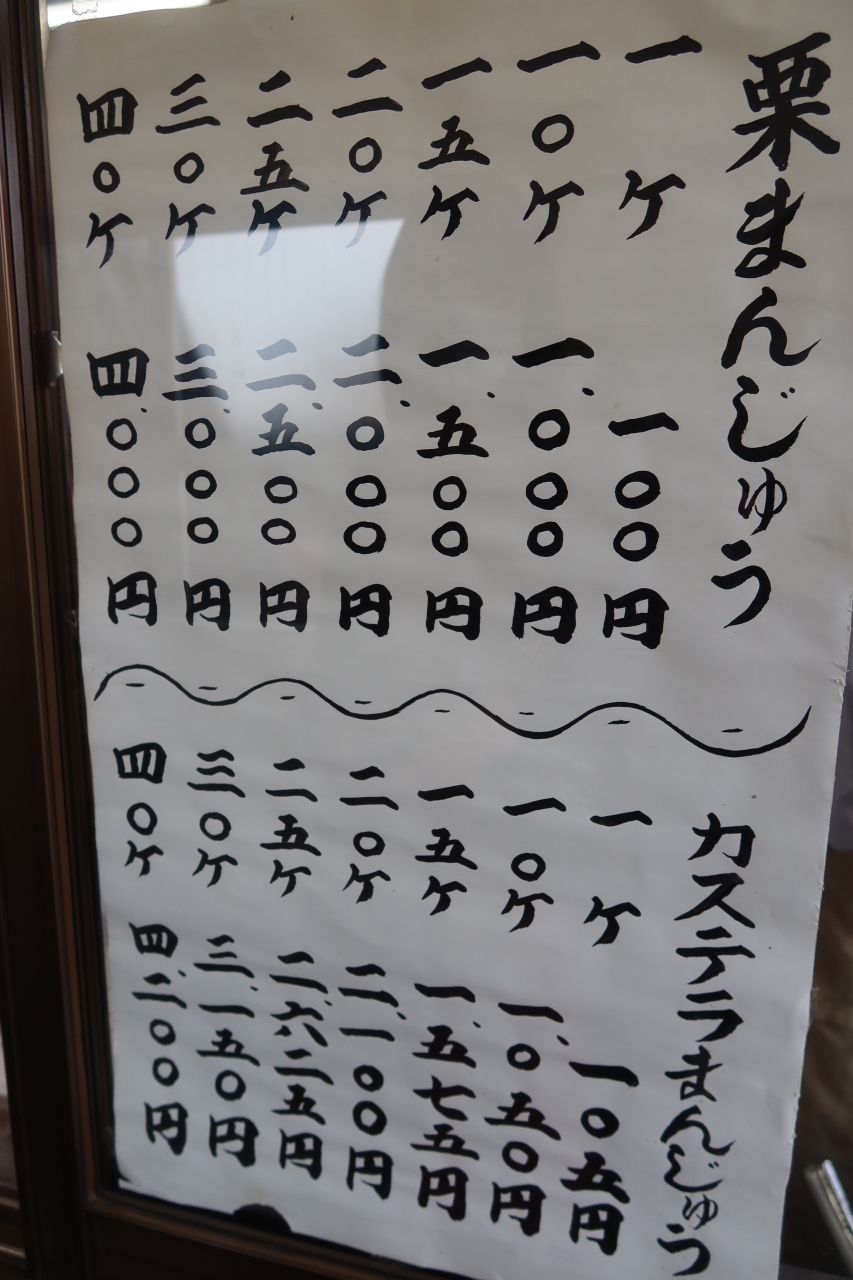 栗まんじゅう
一ケ 一〇〇円
一〇ケ 一、〇〇〇円
一五ケ 一、五〇〇円
二〇ケ 二、〇〇〇円
二五ケ 二、五〇〇円
三〇ケ 三、〇〇〇円
四〇ケ 四、〇〇〇円
カステラまんじゅう
一ケ 一〇五円
一〇ケ 一、〇五〇円
一五ケ 一、五七五円
二〇ケ 二、一〇〇円
二五ケ 二、六二五円
三〇ケ 三、一五〇円
四〇ケ 四、二〇〇円